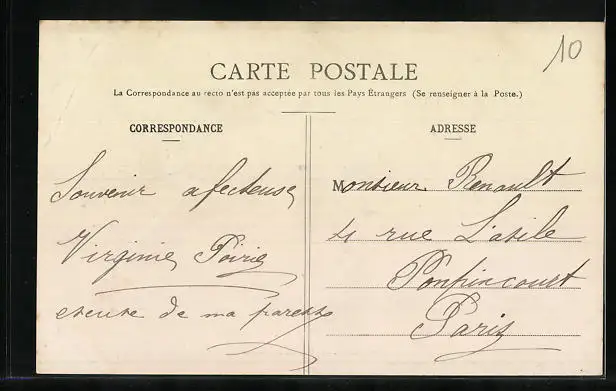 10
CARTE POSTALE
La Correspondance au recto n'est pas acceptée par tous les Pays Étrangers (Se renseigner à la Poste.)
CORRESPONDANCE
Souvenir afecteuse
Virginie Poirie
exeuse de ma paresse
ADRESSE
Monsieur Renault
41 rue L'asile
Poupincourt
Paris